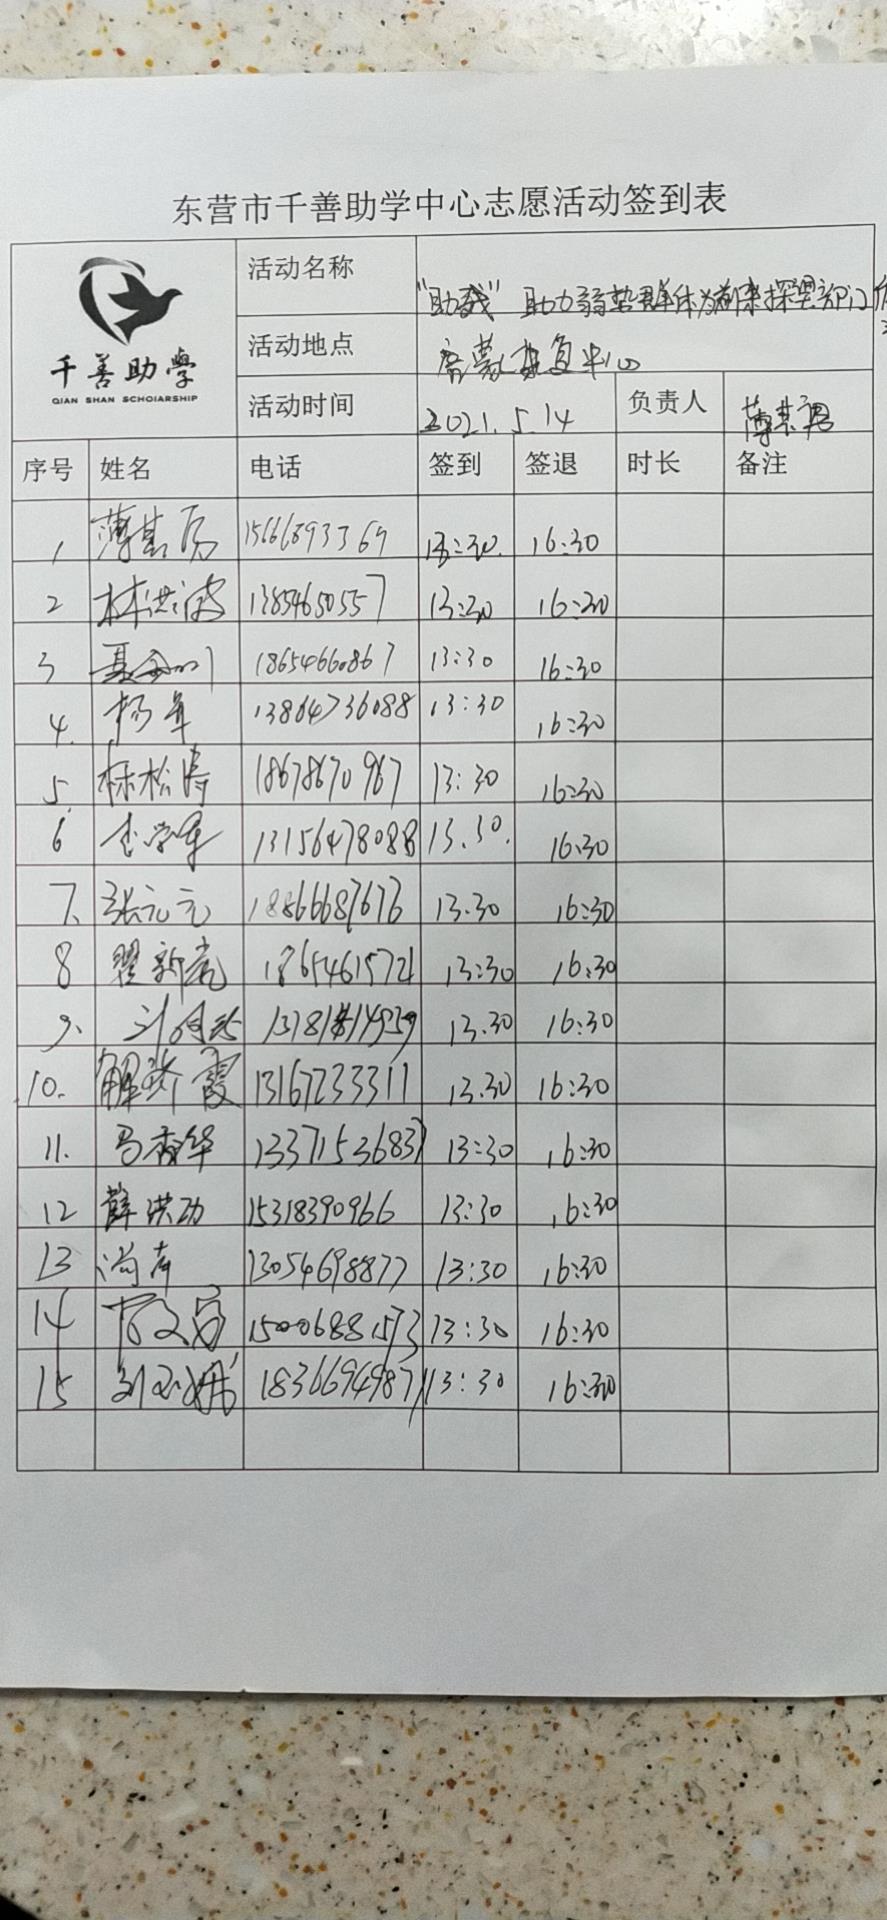 东营市千善助学中心志愿活动签到表
千善助学
QIAN SHAN SCHOIARSHIP
活动名称 "助残" 助力弱势群体
活动地点 启蒙康复中心
活动时间 2021.5.14 负责人
序号 姓名 电话 签到 签退 时长 备注
1 13:30 16:30
2 林洪波 13854650557 13:30 16:30
3 18654660867 13:30 16:30
4. 杨军 13864736088 13:30 16:30
5. 林松涛 18678670967 13:30 16:30
6 李学军 13156478088 13.30. 16:30
7. 张元元 18866687673 13.30 16:30
8 翟新亮 18654615721 13:30 16:30
9. 13.30 16:30
10. 解娇霞 13167233311 13.30 16:30
11. 马春华 13371536837 13:30 16:30
12 薛洪功 15318390966 13:30 16:30
13 尚青 13054698877 13:30 16:30
14 150006881573 13:30 16:30
15 刘玉娜 18366949871 13:30 16:30